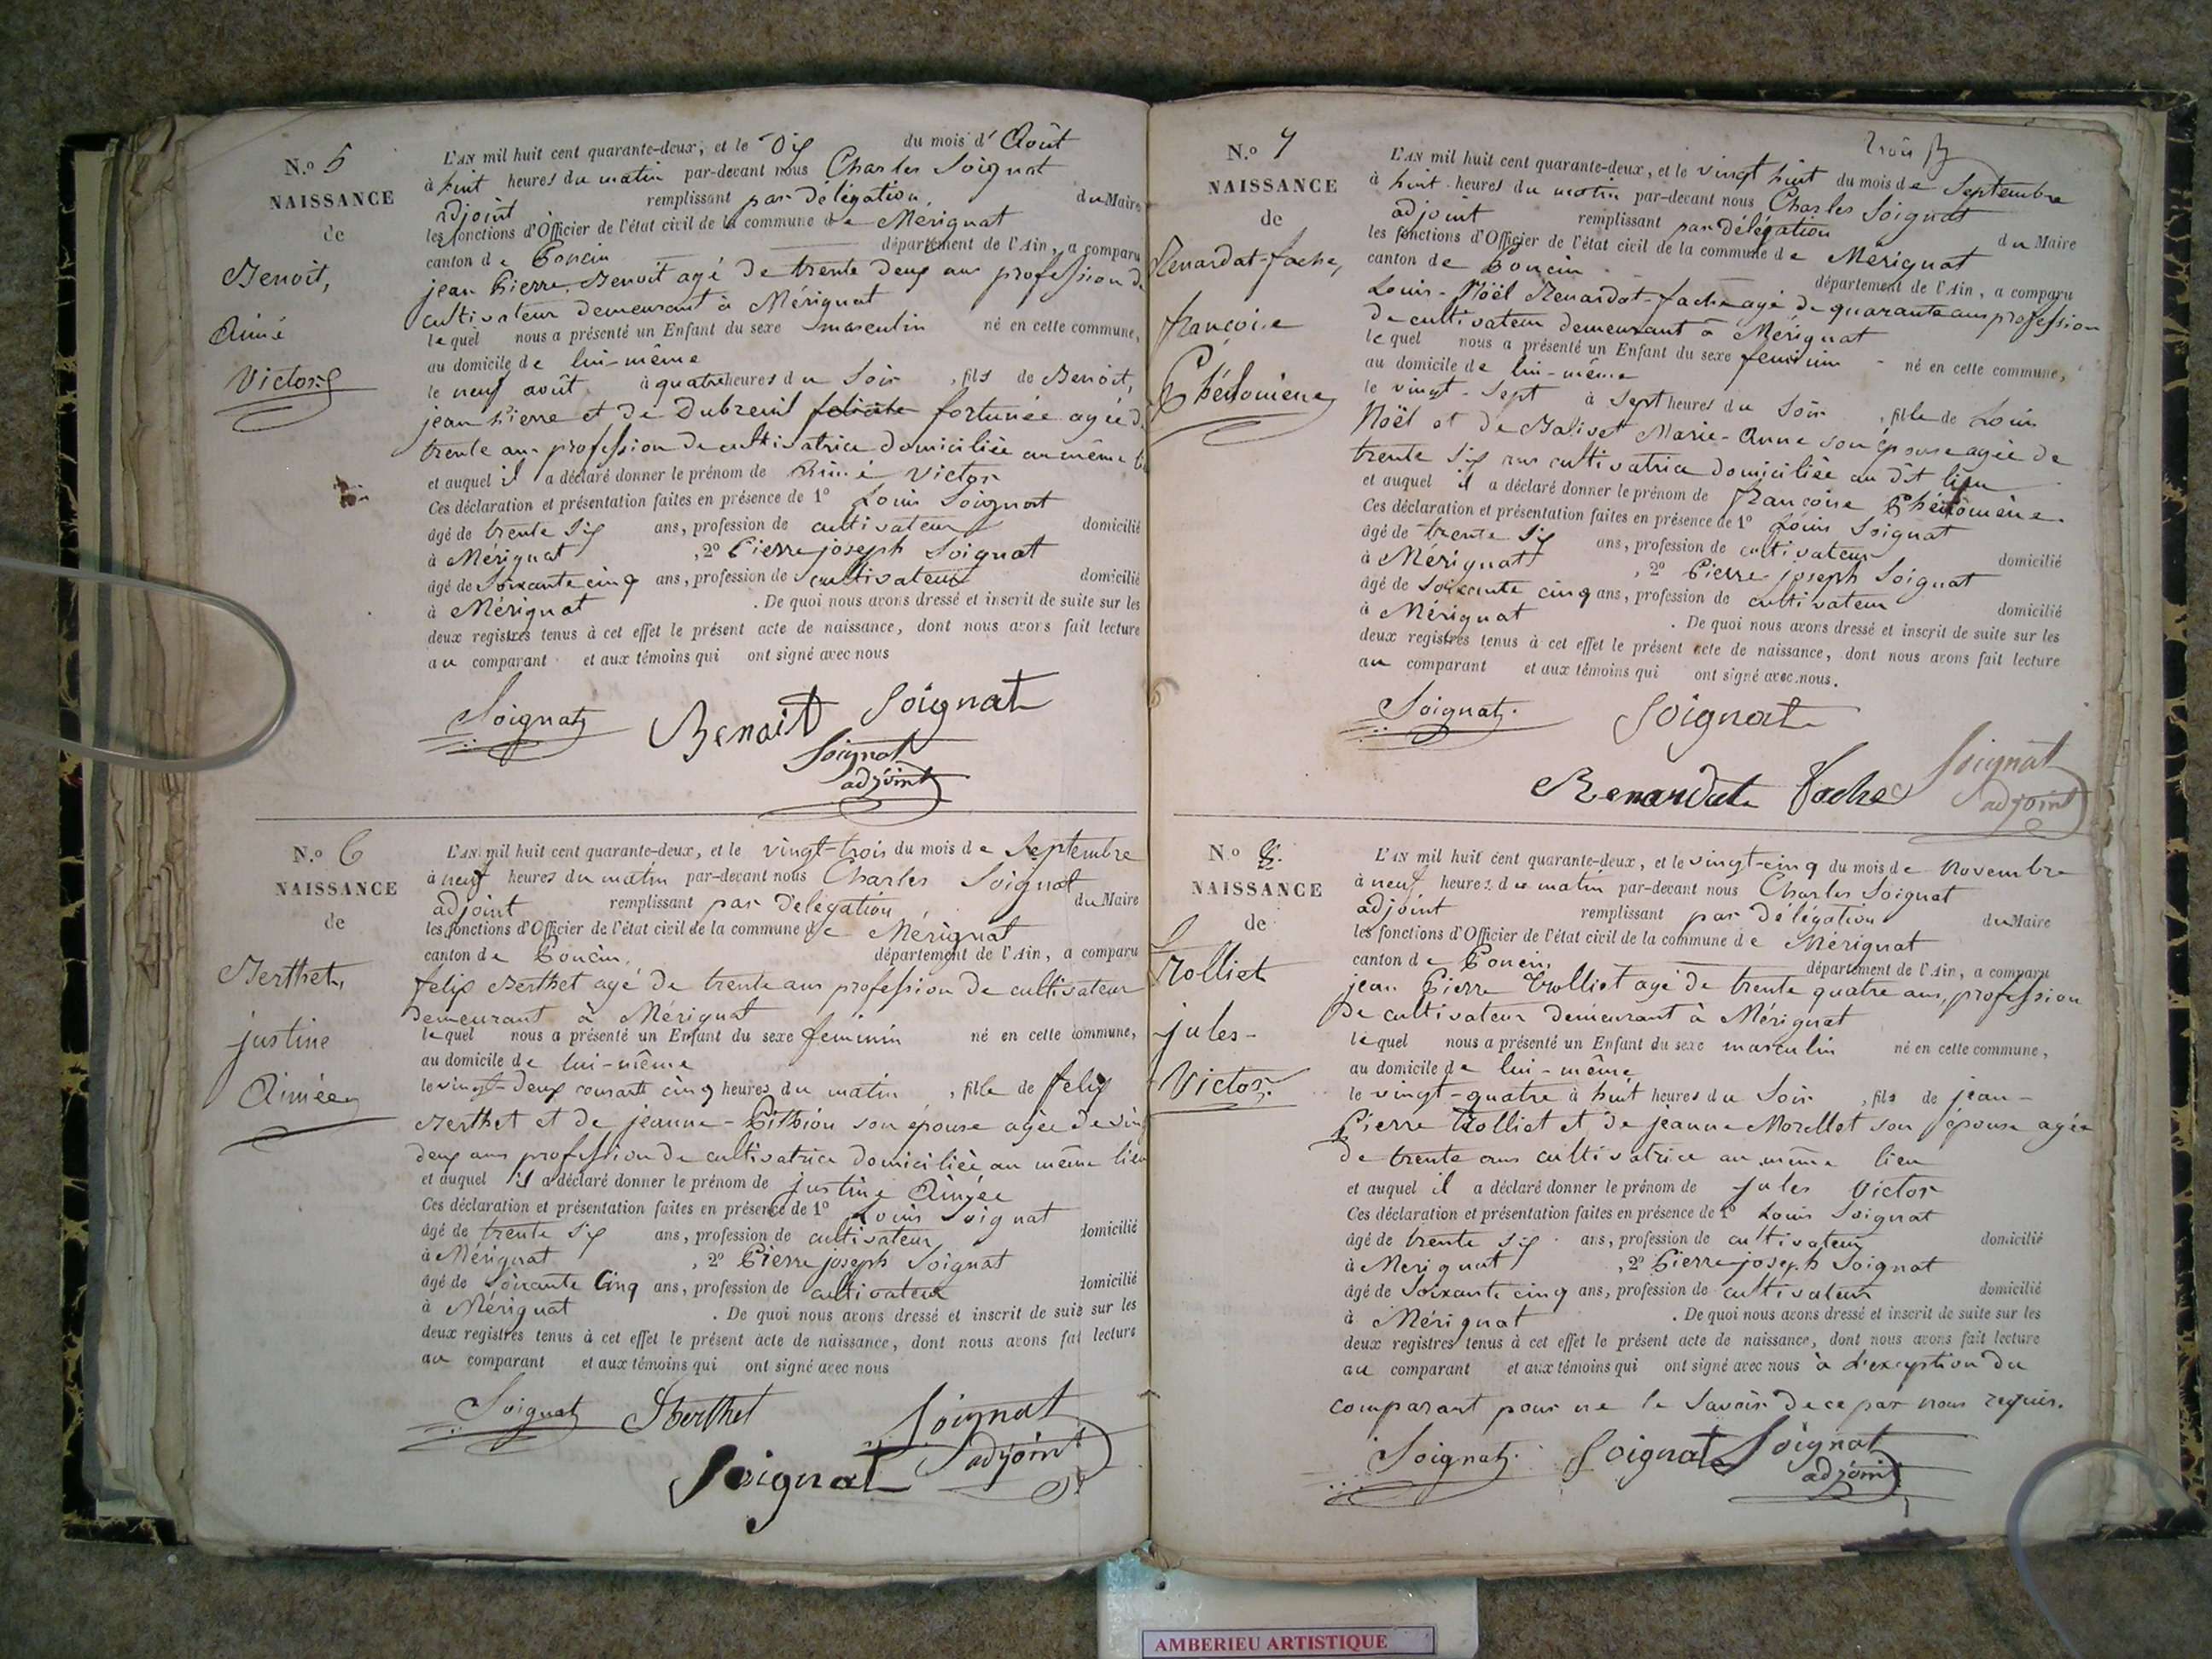 N.o 5
NAISSANCE
de
Benoit,
Aimé
Victor
L'AN mil huit cent quarante-deux, et le Dix du mois d'Août
à huit heures du matin par-devant nous Charles Soignat
adjoint remplissant par délégation du Maire
les fonctions d'Officier de l'état civil de la commune de Mérignat
canton de Poncin département de l'Ain, a comparu
jean Pierre Benoit agé de trente deux ans profession de
cultivateur demeurant à Mérignat
lequel nous a présenté un Enfant du sexe masculin né en cette commune,
au domicile de lui-même
le neuf août à quatre heures du Soir, fils de Benoit,
jean Pierre et de Dubreuil felicité fortunée agée de
trente ans profession de cultivatrice domiciliée au même
et auquel il a déclaré donner le prénom de Aimé Victor
Ces déclaration et présentation faites en présence de 1o Louis Soignat
âgé de trente Six ans, profession de cultivateur domicilié
à Mérignat, 2o Pierre joseph Soignat
âgé de Soixante cinq ans, profession de cultivateur domicilié
à Mérignat. De quoi nous avons dressé et inscrit de suite sur les
deux registres tenus à cet effet le présent acte de naissance, dont nous avons fait lecture
au comparant et aux témoins qui ont signé avec nous
Soignat Benoit Soignat
Soignat
adjoint
N.o 6
NAISSANCE
de
Berthet,
justine
Aimée
L'AN mil huit cent quarante-deux, et le vingt-trois du mois de Septembre
à neuf heures du matin par-devant nous Charles Soignat
adjoint remplissant par délégation du Maire
les fonctions d'Officier de l'état civil de la commune de Mérignat
canton de Poncin. département de l'Ain, a comparu
felix Berthet agé de trente ans profession de cultivateur
demeurant à Mérignat
lequel nous a présenté un Enfant du sexe feminin né en cette commune,
au domicile de lui-même
le vingt-deux courant cinq heures du matin, fille de felix
Berthet et de jeanne-Pithion son épouse agée de vingt
deux ans profession de cultivatrice domiciliée au même lieu
et auquel il a déclaré donner le prénom de justine Aimée
Ces déclaration et présentation faites en présence de 1o Louis Soignat
âgé de trente Six ans, profession de cultivateur domicilié
à Mérignat, 2o Pierre joseph Soignat
âgé de Soixante Cinq ans, profession de cultivateur domicilié
à Mérignat. De quoi nous avons dressé et inscrit de suite sur les
deux registres tenus à cet effet le présent acte de naissance, dont nous avons fait lecture
au comparant et aux témoins qui ont signé avec nous
Soignat Berthet Soignat
adjoint
Soignat
trois
N.o 7
NAISSANCE
de
Renardat-fache,
françoise
Phélomène
L'AN mil huit cent quarante-deux, et le vingt huit du mois de Septembre
à huit heures du matin par-devant nous Charles Soignat
adjoint remplissant par délégation du Maire
les fonctions d'Officier de l'état civil de la commune de Mérignat
canton de Poncin département de l'Ain, a comparu
Louis-Noël Renardat-fache agé de quarante ans profession
de cultivateur demeurant à Mérignat
lequel nous a présenté un Enfant du sexe feminin né en cette commune,
au domicile de lui-même
le vingt-sept à Sept heures du Soir, fille de Louis
Noël et de Balivet Marie-Anne son épouse agée de
trente Six ans cultivatrice domiciliée au dit lieu
et auquel il a déclaré donner le prénom de françoise Phélomène.
Ces déclaration et présentation faites en présence de 1o Louis Soignat
âgé de trente Six ans, profession de cultivateur domicilié
à Mérignat, 2o Pierre joseph Soignat
âgé de soixante cinq ans, profession de cultivateur domicilié
à Mérignat. De quoi nous avons dressé et inscrit de suite sur les
deux registres tenus à cet effet le présent acte de naissance, dont nous avons fait lecture
au comparant et aux témoins qui ont signé avec nous.
Soignat Soignat
Renardat fache Soignat
adjoint
N.o 8.
NAISSANCE
de
Trolliet
jules-
Victor.
L'AN mil huit cent quarante-deux, et le vingt-cinq du mois de Novembre
à neuf heures du matin par-devant nous Charles Soignat
adjoint remplissant par délégation du Maire
les fonctions d'Officier de l'état civil de la commune de Mérignat
canton de Poncin, département de l'Ain, a comparu
jean Pierre Trolliet agé de trente quatre ans, profession
de cultivateur demeurant à Mérignat
lequel nous a présenté un Enfant du sexe masculin né en cette commune,
au domicile de lui-même
le vingt-quatre à huit heures du Soir, fils de jean-
Pierre Trolliet et de jeanne Morellet son épouse agée
de trente ans cultivatrice au même lieu
et auquel il a déclaré donner le prénom de jules Victor
Ces déclaration et présentation faites en présence de 1o Louis Soignat
âgé de trente Six ans, profession de cultivateur domicilié
à Merignat, 2o Pierre-joseph Soignat
âgé de Soixante cinq ans, profession de cultivateur domicilié
à Mérignat. De quoi nous avons dressé et inscrit de suite sur les
deux registres tenus à cet effet le présent acte de naissance, dont nous avons fait lecture
au comparant et aux témoins qui ont signé avec nous à l'exception du
comparant pour ne le Savoir de ce par nous requis.
Soignat Soignat Soignat
adjoint
AMBERIEU ARTISTIQUE